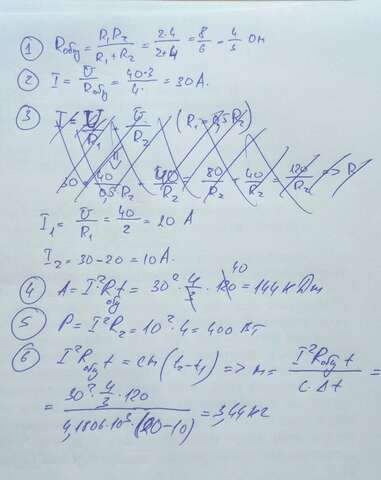 ① Rобщ = R₁R₂/(R₁+R₂) = 2·4/(2+4) = 8/6 = 4/3 Ом
② I = U/Rобщ = 40·3/4 = 30 А.
③ I = U/R₁ + U/R₂ (R₁ = 0,5R₂)
30 = 40/0,5R₂ + 40/R₂ = 80/R₂ + 40/R₂ = 120/R₂ => R
I₁ = U/R₁ = 40/2 = 20 А
I₂ = 30-20 = 10 А.
④ A = I²Rобщt = 30²·4/3·120 40 = 144 кДж
⑤ P = I²R₂ = 10²·4 = 400 Вт
⑥ I²Rобщt = cm(t₂-t₁) => m = I²Rобщt/(c·Δt) =
= 30²·4/3·120/(4,1806·10³·(20-10)) = 3,44 кг